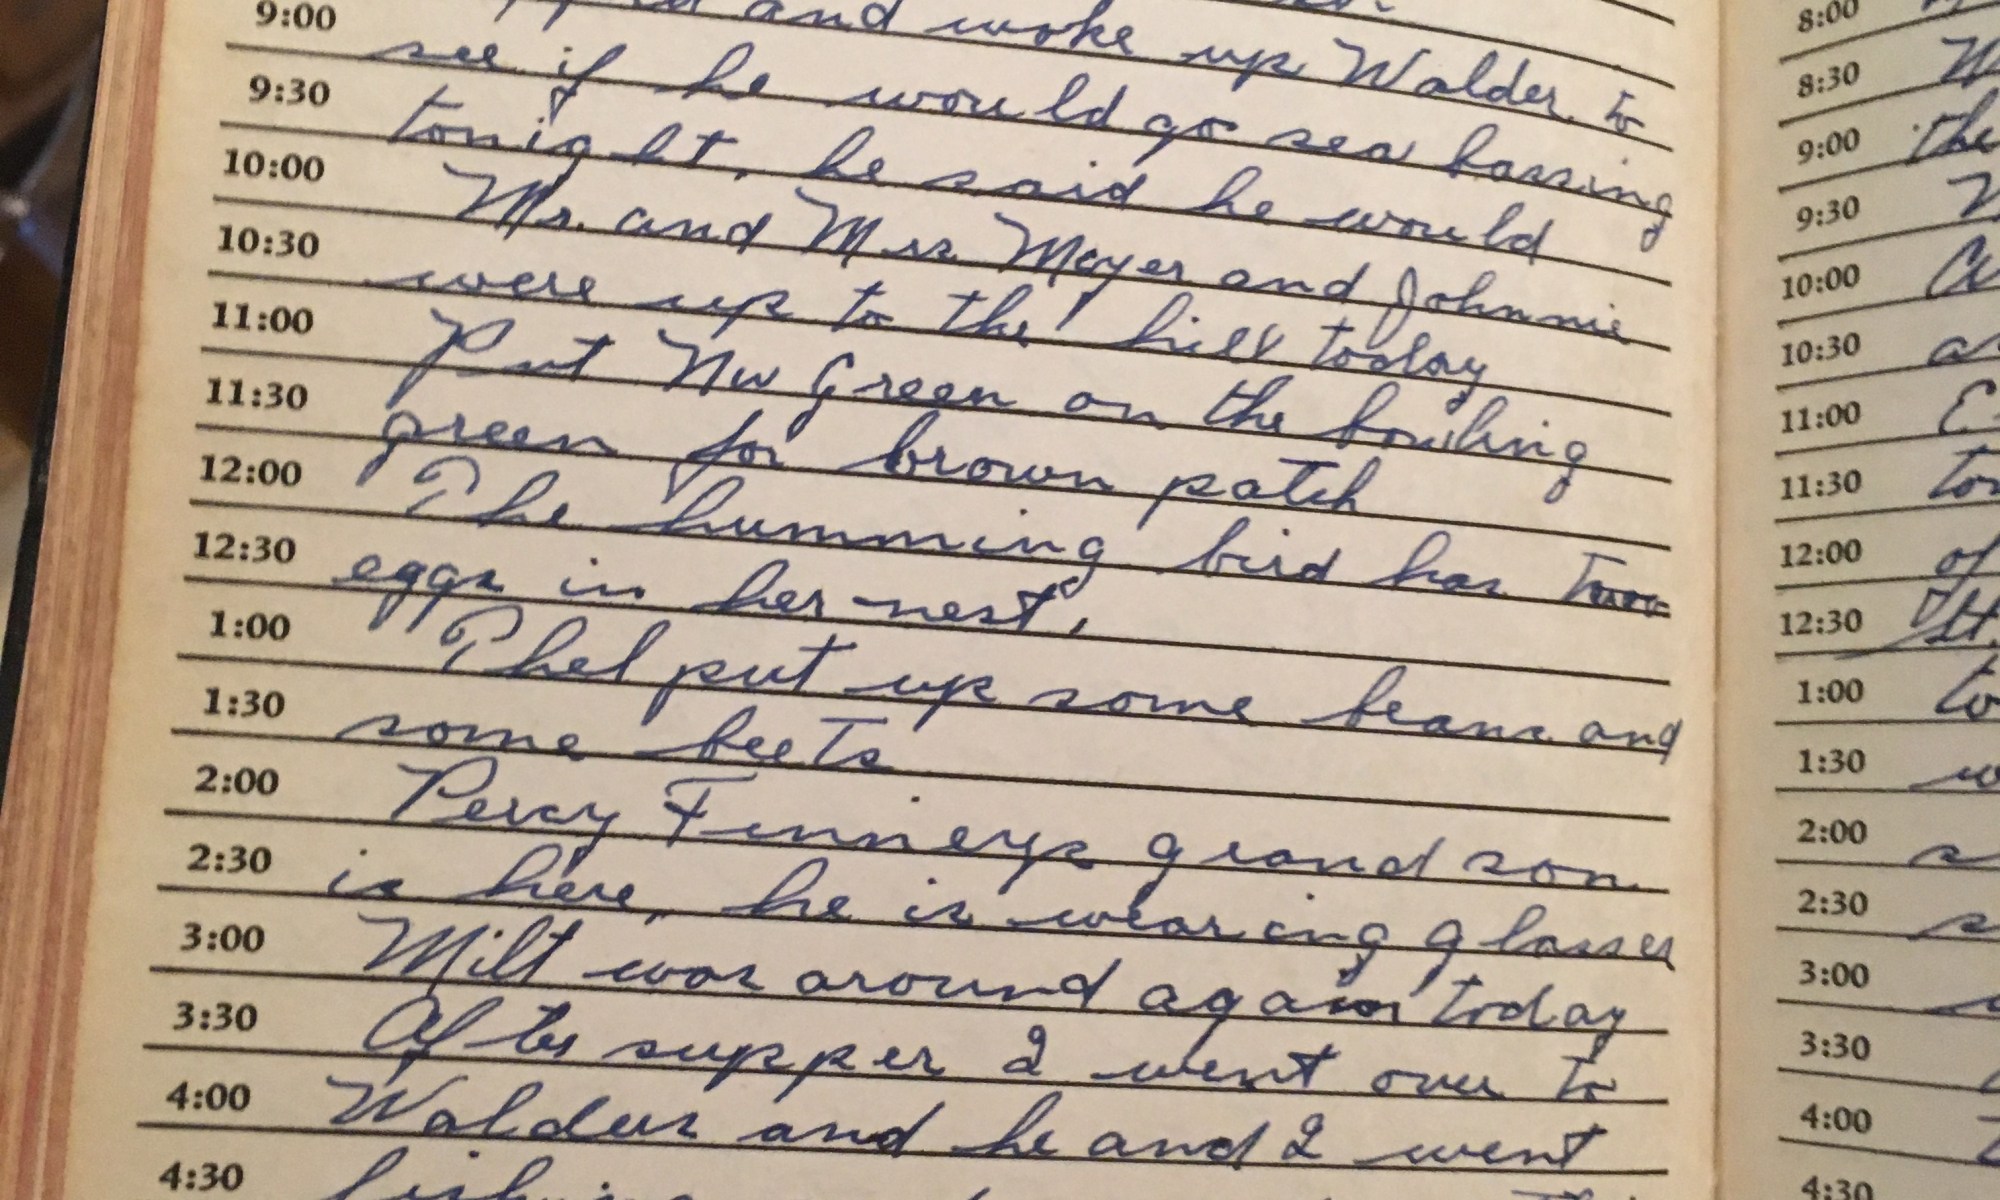 9:00 and woke up Walder to
see if he would go sea bassing
9:30 tonight, he said he would
10:00 Mr. and Mrs Meyer and Johnnie
10:30 were up to the hill today
11:00 Put Nu Green on the bowling
11:30 green for brown patch
12:00 The humming bird has two
12:30 eggs in her nest,
1:00 Thel put up some beans and
1:30 some beets
2:00 Percy Finneys grand son
2:30 is here, he is wearing glasses
3:00 Milt was around again today
3:30 After supper I went over to
4:00 Walders and he and I went
4:30
8:00
8:30
9:00 the
9:30
10:00
10:30
11:00
11:30
12:00 of
12:30
1:00 to
1:30
2:00
2:30
3:00
3:30
4:00
4:30